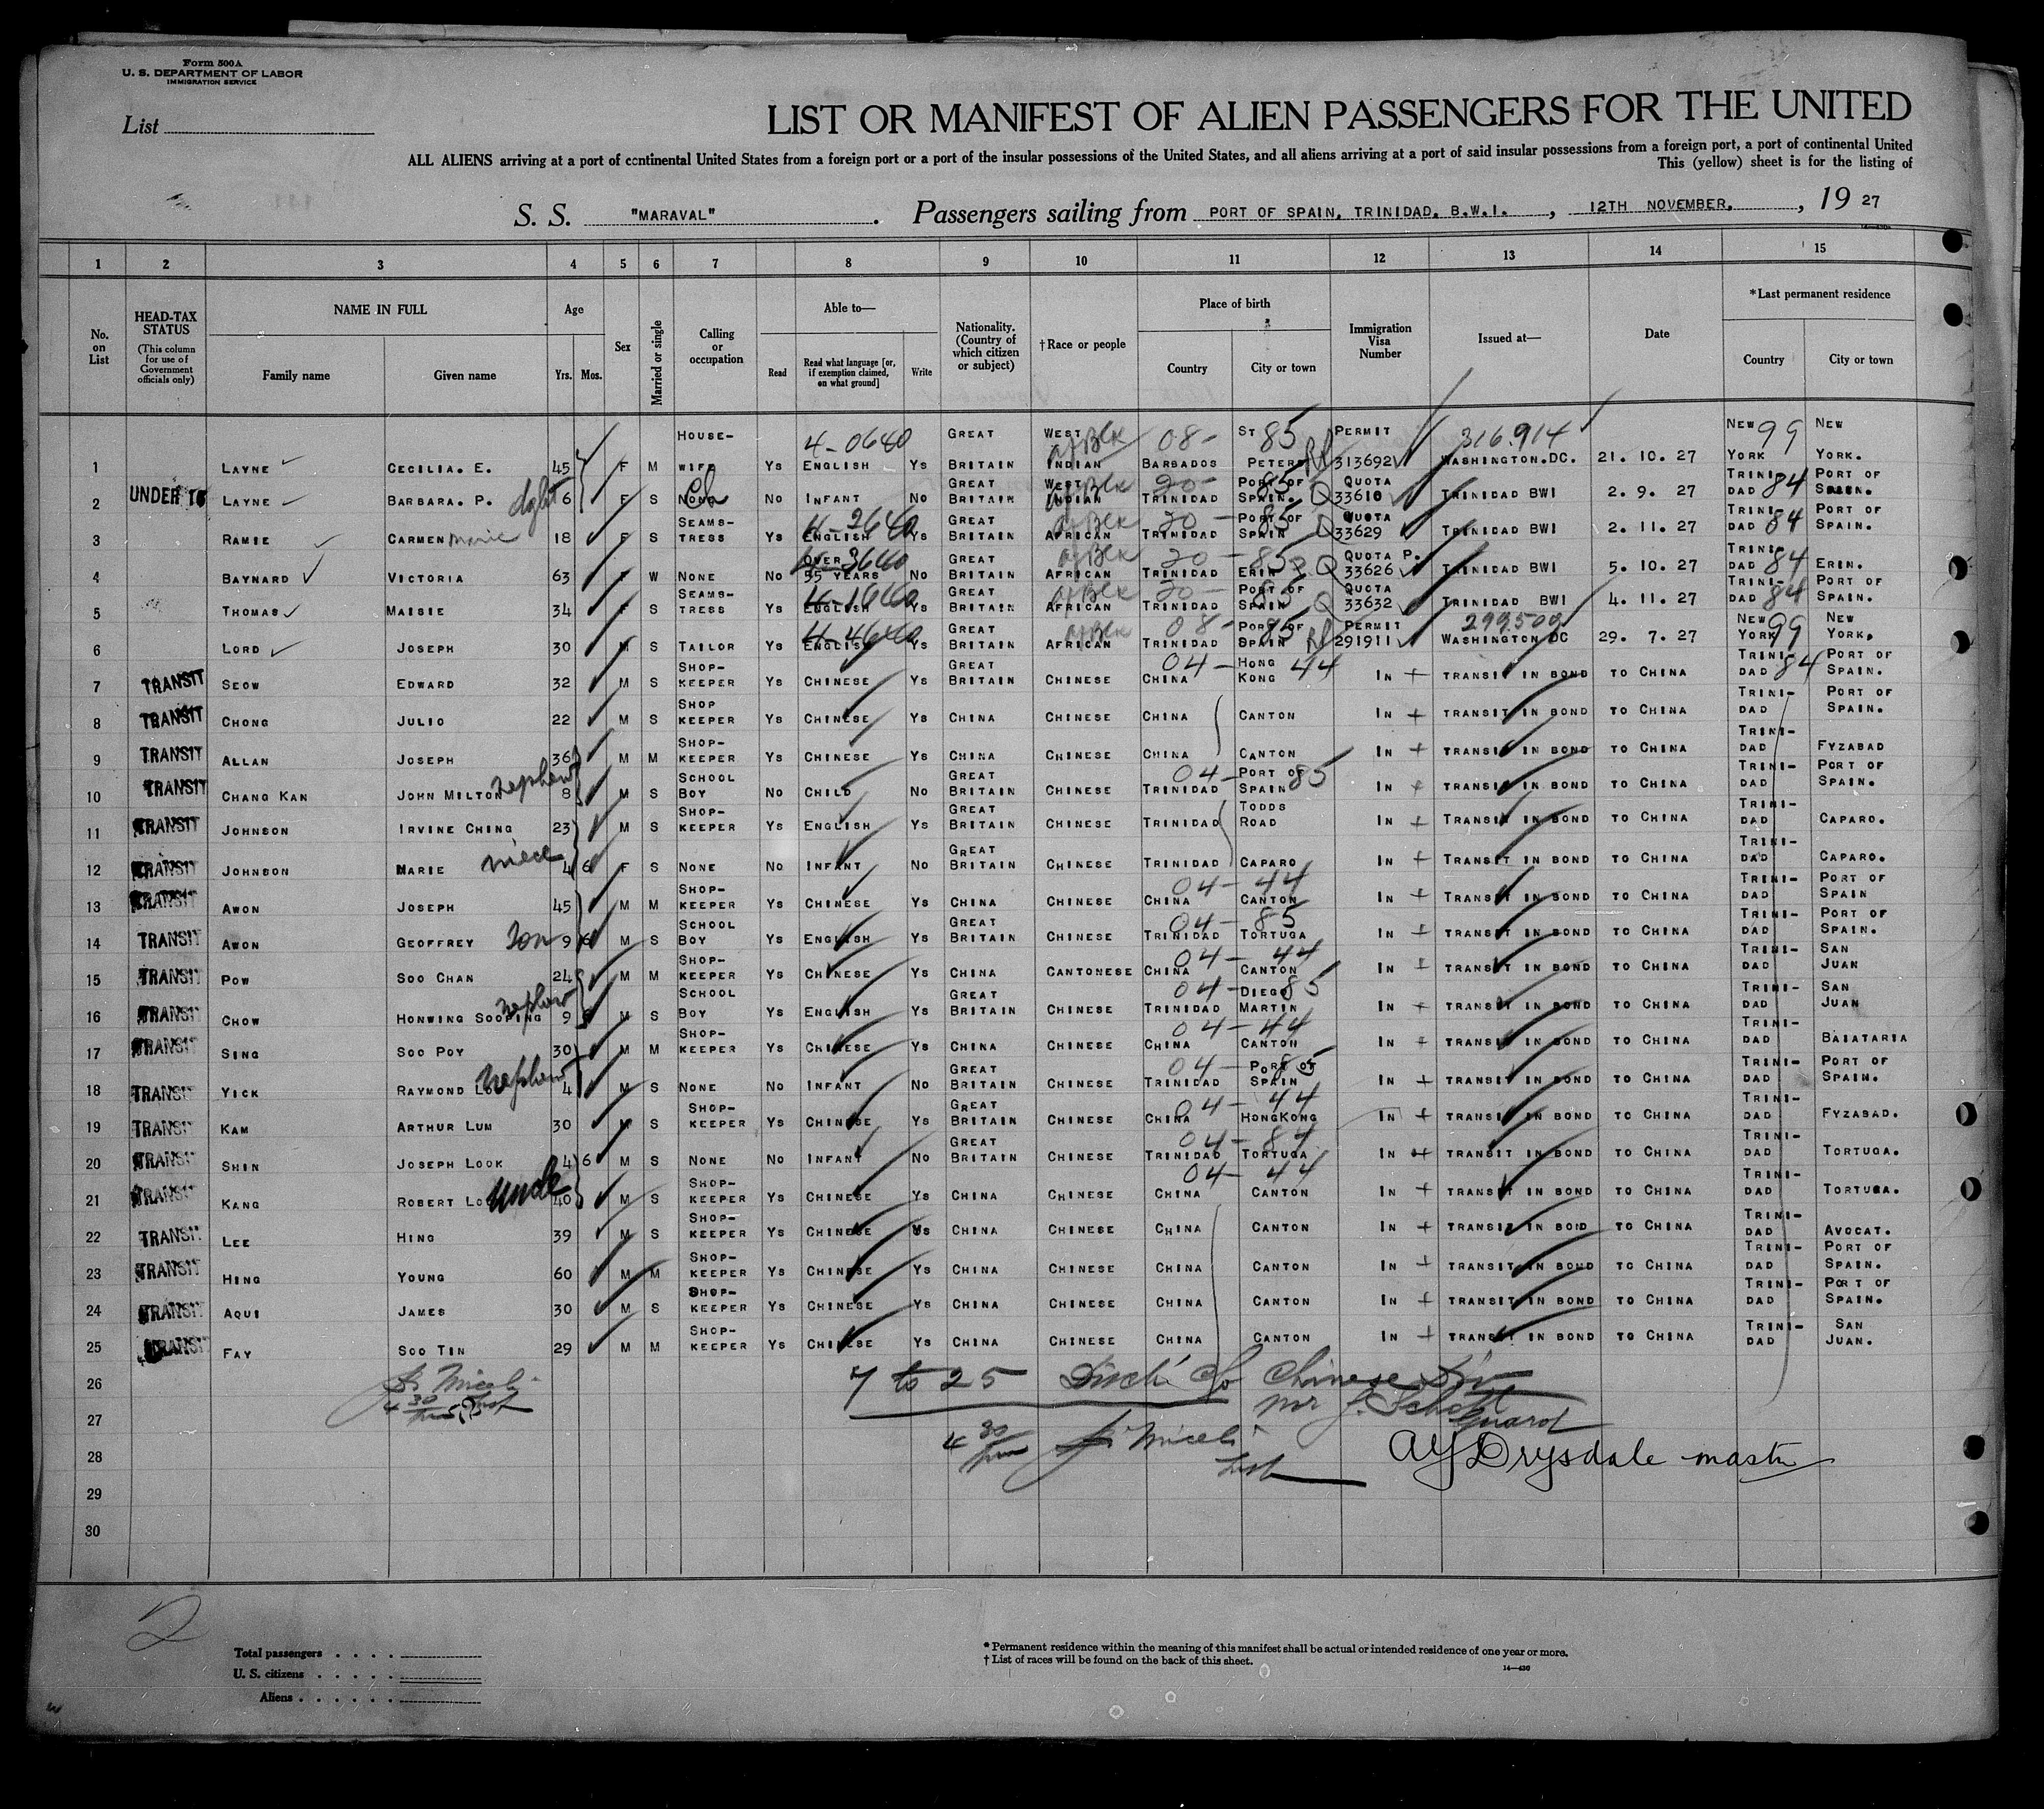 Form 500A
U. S. DEPARTMENT OF LABOR
IMMIGRATION SERVICE
List
LIST OR MANIFEST OF ALIEN PASSENGERS FOR THE UNITED
ALL ALIENS arriving at a port of continental United States from a foreign port or a port of the insular possessions of the United States, and all aliens arriving at a port of said insular possessions from a foreign port, a port of continental United
This (yellow) sheet is for the listing of
S. S. "MARAVAL". Passengers sailing from PORT OF SPAIN, TRINIDAD, B.W.I., 12TH NOVEMBER, 1927
1 2 3 4 5 6 7 8 9 10 11 12 13 14 15
No. on List
HEAD-TAX STATUS (This column for use of Government officials only)
NAME IN FULL Family name Given name
Age Yrs. Mos.
Sex
Married or single
Calling or occupation
Able to— Read Read what language [or, if exemption claimed, on what ground] Write
Nationality. (Country of which citizen or subject)
†Race or people
Place of birth Country City or town
Immigration Visa Number
Issued at—
Date
*Last permanent residence Country City or town
1 LAYNE CECILIA. E. 45 F M HOUSE-WIFE Ys ENGLISH 4-0640 Ys GREAT BRITAIN WEST INDIAN af Blk BARBADOS 08- ST PETERS 85 PERMIT 313692 316.914 WASHINGTON.DC. 21. 10. 27 NEW YORK 99 NEW YORK.
2 UNDER 16 LAYNE BARBARA. P. dght 6 F S NONE Ch No INFANT No GREAT BRITAIN WEST INDIAN af Blk TRINIDAD 20- PORT OF SPAIN. 85 Q QUOTA 33610 TRINIDAD BWI 2. 9. 27 TRINIDAD 84 PORT OF SPAIN.
3 RAMIE CARMEN Marie 18 F S SEAMS-TRESS Ys ENGLISH 4-2640 Ys GREAT BRITAIN AFRICAN af Blk TRINIDAD 20- PORT OF SPAIN 85 Q QUOTA 33629 TRINIDAD BWI 2. 11. 27 TRINIDAD 84 PORT OF SPAIN.
4 BAYNARD VICTORIA 63 F W NONE No OVER 55 YEARS 3640 No GREAT BRITAIN AFRICAN af Blk TRINIDAD 20- ERIN 85 Q QUOTA P. 33626 TRINIDAD BWI 5. 10. 27 TRINIDAD 84 ERIN.
5 THOMAS MAISIE 34 F S SEAMS-TRESS Ys ENGLISH 4-1640 Ys GREAT BRITAIN AFRICAN af Blk TRINIDAD 20- PORT OF SPAIN 85 Q QUOTA 33632 TRINIDAD BWI 4. 11. 27 TRINIDAD 84 PORT OF SPAIN.
6 LORD JOSEPH 30 M S TAILOR Ys ENGLISH 4-4640 Ys GREAT BRITAIN AFRICAN af Blk TRINIDAD 08- PORT OF SPAIN 85 PERMIT 291911 299.509 WASHINGTON DC 29. 7. 27 NEW YORK 99 NEW YORK.
7 TRANSIT SEOW EDWARD 32 M S SHOP-KEEPER Ys CHINESE Ys GREAT BRITAIN CHINESE CHINA 04- HONG KONG 44 IN TRANSIT IN BOND TO CHINA TRINIDAD 84 PORT OF SPAIN.
8 TRANSIT CHONG JULIO 22 M S SHOP KEEPER Ys CHINESE Ys CHINA CHINESE CHINA CANTON IN TRANSIT IN BOND TO CHINA TRINI-DAD PORT OF SPAIN.
9 TRANSIT ALLAN JOSEPH 36 M M SHOP-KEEPER Ys CHINESE Ys CHINA CHINESE CHINA CANTON IN TRANSIT IN BOND TO CHINA TRINI-DAD FYZABAD
10 TRANSIT CHANG KAN JOHN MILTON nephew 8 M S SCHOOL BOY No CHILD No GREAT BRITAIN CHINESE TRINIDAD 04- PORT OF SPAIN 85 IN TRANSIT IN BOND TO CHINA TRINI-DAD PORT OF SPAIN.
11 TRANSIT JOHNSON IRVINE CHING 23 M S SHOP-KEEPER Ys ENGLISH Ys GREAT BRITAIN CHINESE TRINIDAD TODDS ROAD IN TRANSIT IN BOND TO CHINA TRINI-DAD CAPARO.
12 TRANSIT JOHNSON MARIE niece 4 6 F S NONE No INFANT No GREAT BRITAIN CHINESE TRINIDAD CAPARO IN TRANSIT IN BOND TO CHINA TRINI-DAD CAPARO.
13 TRANSIT AWON JOSEPH 45 M M SHOP-KEEPER Ys CHINESE Ys CHINA CHINESE CHINA 04- CANTON 44 IN TRANSIT IN BOND TO CHINA TRINI-DAD PORT OF SPAIN
14 TRANSIT AWON GEOFFREY Son 9 6 M S SCHOOL BOY Ys ENGLISH Ys GREAT BRITAIN CHINESE TRINIDAD 04- TORTUGA 85 IN TRANSIT IN BOND TO CHINA TRINI-DAD PORT OF SPAIN.
15 TRANSIT POW SOO CHAN 24 M M SHOP-KEEPER Ys CHINESE Ys CHINA CANTONESE CHINA 04- CANTON 44 IN TRANSIT IN BOND TO CHINA TRINI-DAD SAN JUAN
16 TRANSIT CHOW HONWING SOOPING nephew 9 M S SCHOOL BOY Ys ENGLISH Ys GREAT BRITAIN CHINESE TRINIDAD 04- DIEGO MARTIN 85 IN TRANSIT IN BOND TO CHINA TRINI-DAD SAN JUAN
17 TRANSIT SING SOO POY 30 M M SHOP-KEEPER Ys CHINESE Ys CHINA CHINESE CHINA 04- CANTON 44 IN TRANSIT IN BOND TO CHINA TRINI-DAD BAIATARIA
18 TRANSIT YICK RAYMOND nephew 4 M S NONE No INFANT No GREAT BRITAIN CHINESE TRINIDAD 04- PORT OF SPAIN 85 IN TRANSIT IN BOND TO CHINA TRINI-DAD PORT OF SPAIN.
19 TRANSIT KAM ARTHUR LUM 30 M S SHOP-KEEPER Ys CHINESE Ys GREAT BRITAIN CHINESE CHINA 04- HONGKONG 44 IN TRANSIT IN BOND TO CHINA TRINI-DAD FYZABAD.
20 TRANSIT SHIN JOSEPH LOOK 4 6 M S NONE No INFANT No GREAT BRITAIN CHINESE TRINIDAD 04- TORTUGA 84 IN TRANSIT IN BOND TO CHINA TRINI-DAD TORTUGA.
21 TRANSIT KANG ROBERT uncle 40 M S SHOP-KEEPER Ys CHINESE Ys CHINA CHINESE CHINA 04- CANTON 44 IN TRANSIT IN BOND TO CHINA TRINI-DAD TORTUGA.
22 TRANSIT LEE HING 39 M S SHOP-KEEPER Ys CHINESE Ys CHINA CHINESE CHINA CANTON IN TRANSIT IN BOID TO CHINA TRINI-DAD AVOCAT.
23 TRANSIT HING YOUNG 60 M M SHOP-KEEPER Ys CHINESE Ys CHINA CHINESE CHINA CANTON IN TRANSIT IN BOND TO CHINA TRINI-DAD PORT OF SPAIN.
24 TRANSIT AQUI JAMES 30 M S SHOP-KEEPER Ys CHINESE Ys CHINA CHINESE CHINA CANTON IN TRANSIT IN BOND TO CHINA TRINI-DAD PORT OF SPAIN.
25 TRANSIT FAY SOO TIN 29 M M SHOP-KEEPER Ys CHINESE Ys CHINA CHINESE CHINA CANTON IN TRANSIT IN BOND TO CHINA TRINI-DAD SAN JUAN.
26 7 to 25 c/o Chinese Div
27 Mr J. Schott Guard
28 4 30 AY Drysdale master
29
30
2
Total passengers
U. S. citizens
Aliens
* Permanent residence within the meaning of this manifest shall be actual or intended residence of one year or more.
† List of races will be found on the back of this sheet.
14—430